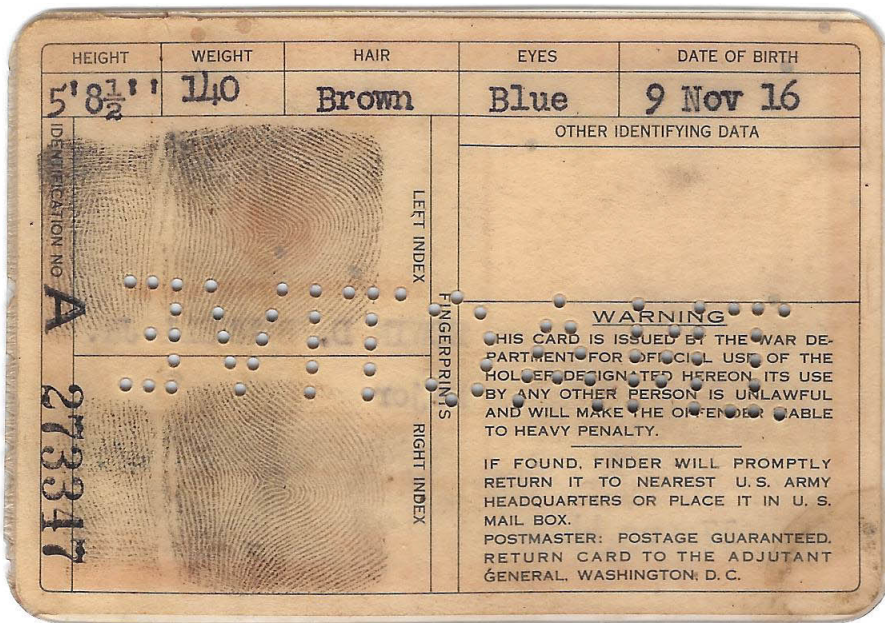 HEIGHT WEIGHT HAIR EYES DATE OF BIRTH
5'8½'' 140 Brown Blue 9 Nov 16
IDENTIFICATION NO
A 273347
LEFT INDEX
FINGERPRINTS
RIGHT INDEX
OTHER IDENTIFYING DATA
WARNING
THIS CARD IS ISSUED BY THE WAR DE-
PARTMENT FOR OFFICIAL USE OF THE
HOLDER DESIGNATED HEREON. ITS USE
BY ANY OTHER PERSON IS UNLAWFUL
AND WILL MAKE THE OFFENDER LIABLE
TO HEAVY PENALTY.
IF FOUND, FINDER WILL PROMPTLY
RETURN IT TO NEAREST U. S. ARMY
HEADQUARTERS OR PLACE IT IN U. S.
MAIL BOX.
POSTMASTER: POSTAGE GUARANTEED.
RETURN CARD TO THE ADJUTANT
GENERAL, WASHINGTON, D. C.